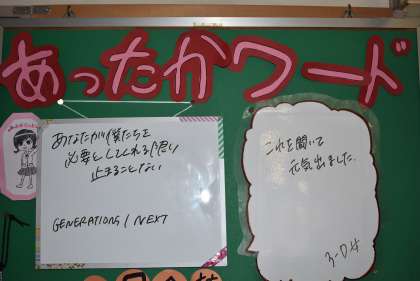 あったかワード
あなたが僕たちを
必要としてくれる限り
止まることない
GENERATIONS / NEXT
これを聞いて
元気出ました。
3-D H